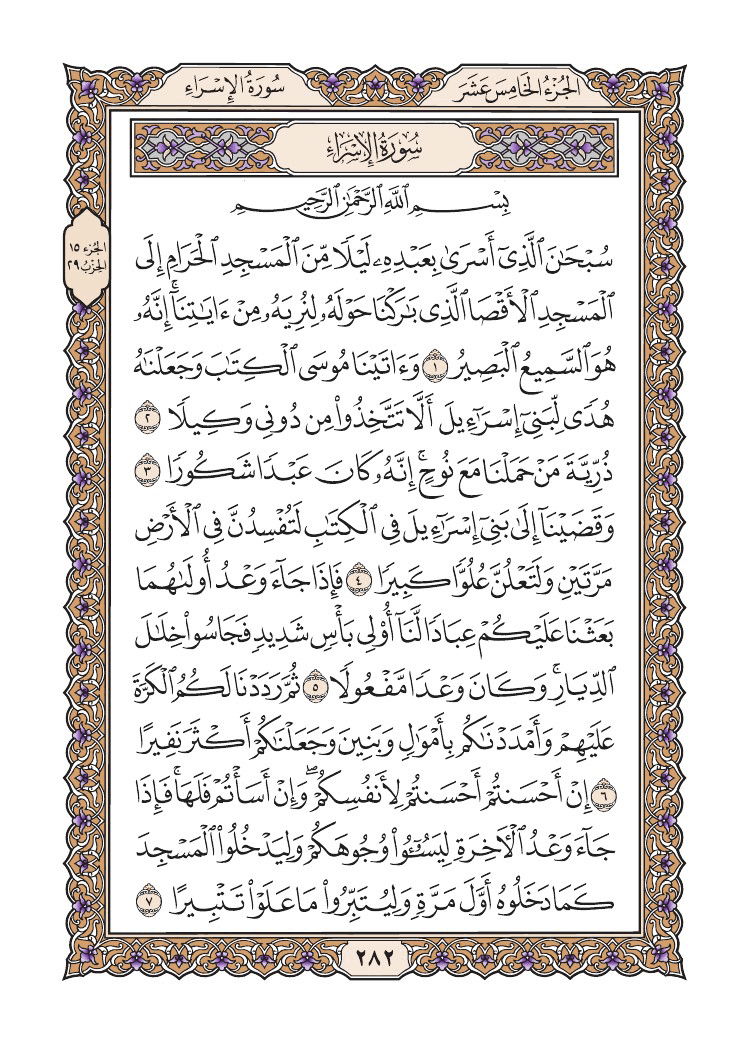 الجُزْءُ الخَامِسَ عَشَرَ
سُورَةُ الإِسْرَاءِ
سُورَةُ الإِسْرَاءِ
الجُزء ١٥
الحِزْبُ ٢٩
بِسْمِ ٱللَّهِ ٱلرَّحْمَٰنِ ٱلرَّحِيمِ
سُبْحَٰنَ ٱلَّذِىٓ أَسْرَىٰ بِعَبْدِهِۦ لَيْلًا مِّنَ ٱلْمَسْجِدِ ٱلْحَرَامِ إِلَى
ٱلْمَسْجِدِ ٱلْأَقْصَا ٱلَّذِى بَٰرَكْنَا حَوْلَهُۥ لِنُرِيَهُۥ مِنْ ءَايَٰتِنَآ ۚ إِنَّهُۥ
هُوَ ٱلسَّمِيعُ ٱلْبَصِيرُ ١ وَءَاتَيْنَا مُوسَى ٱلْكِتَٰبَ وَجَعَلْنَٰهُ
هُدًى لِّبَنِىٓ إِسْرَٰٓءِيلَ أَلَّا تَتَّخِذُوا۟ مِن دُونِى وَكِيلًا ٢
ذُرِّيَّةَ مَنْ حَمَلْنَا مَعَ نُوحٍ ۚ إِنَّهُۥ كَانَ عَبْدًا شَكُورًا ٣
وَقَضَيْنَآ إِلَىٰ بَنِىٓ إِسْرَٰٓءِيلَ فِى ٱلْكِتَٰبِ لَتُفْسِدُنَّ فِى ٱلْأَرْضِ
مَرَّتَيْنِ وَلَتَعْلُنَّ عُلُوًّا كَبِيرًا ٤ فَإِذَا جَآءَ وَعْدُ أُولَىٰهُمَا
بَعَثْنَا عَلَيْكُمْ عِبَادًا لَّنَآ أُو۟لِى بَأْسٍ شَدِيدٍ فَجَاسُوا۟ خِلَٰلَ
ٱلدِّيَارِ ۚ وَكَانَ وَعْدًا مَّفْعُولًا ٥ ثُمَّ رَدَدْنَا لَكُمُ ٱلْكَرَّةَ
عَلَيْهِمْ وَأَمْدَدْنَٰكُم بِأَمْوَٰلٍ وَبَنِينَ وَجَعَلْنَٰكُمْ أَكْثَرَ نَفِيرًا
٦ إِنْ أَحْسَنتُمْ أَحْسَنتُمْ لِأَنفُسِكُمْ ۖ وَإِنْ أَسَأْتُمْ فَلَهَا ۚ فَإِذَا
جَآءَ وَعْدُ ٱلْـَٔاخِرَةِ لِيَسُـۥٓـُٔوا۟ وُجُوهَكُمْ وَلِيَدْخُلُوا۟ ٱلْمَسْجِدَ
كَمَا دَخَلُوهُ أَوَّلَ مَرَّةٍ وَلِيُتَبِّرُوا۟ مَا عَلَوْا۟ تَتْبِيرًا ٧
٢٨٢